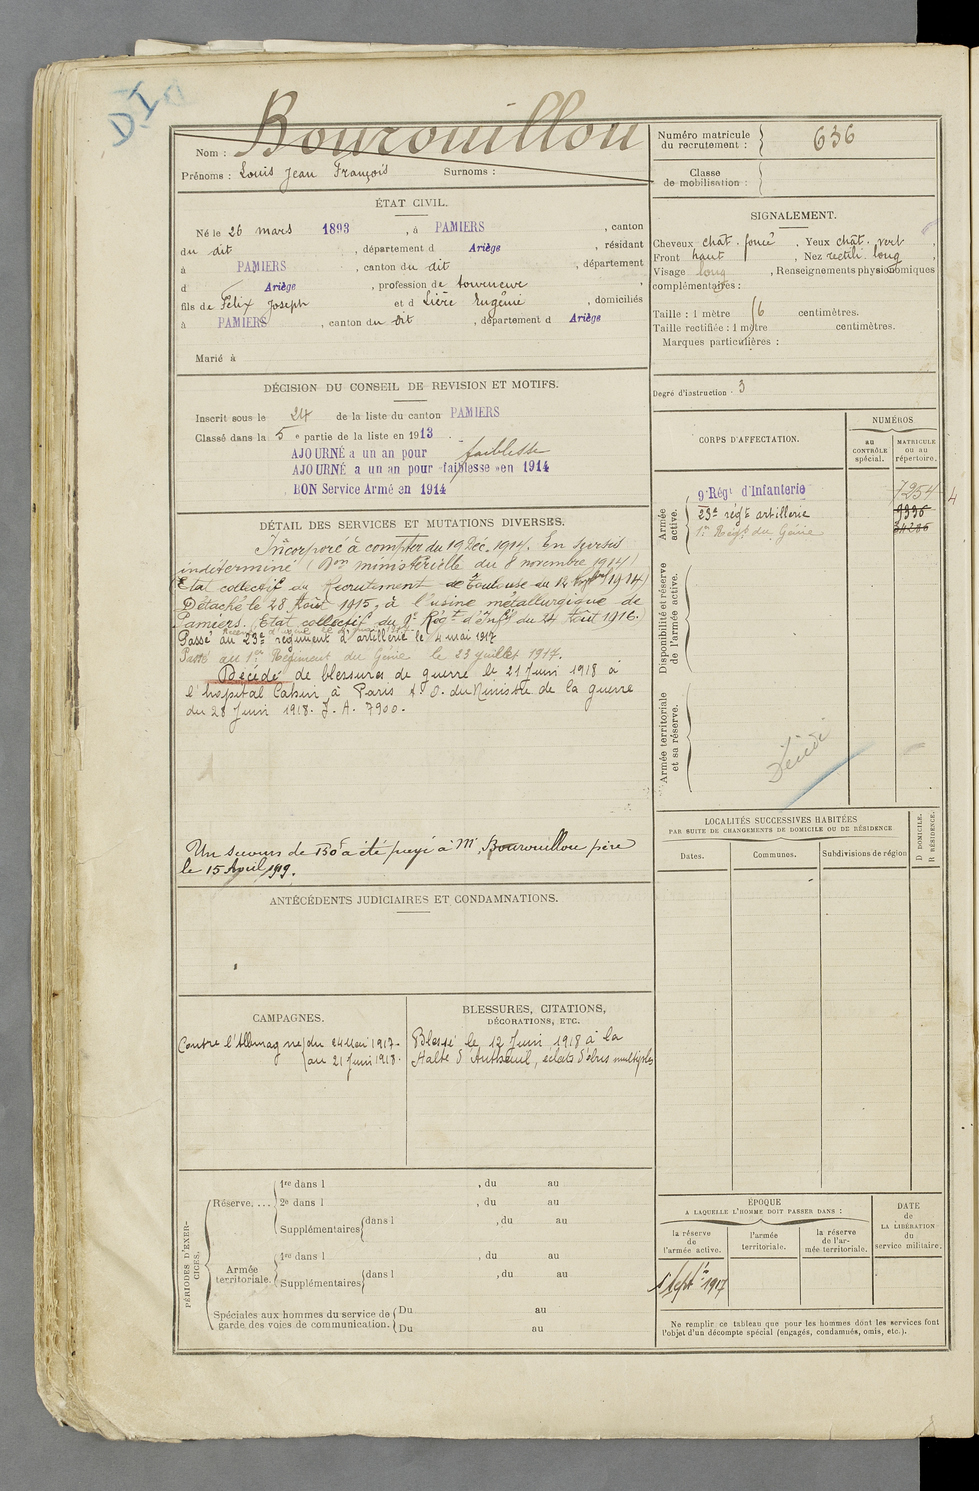 DI
Nom : Bourouillou
Prénoms : Louis Jean François Surnoms :
ÉTAT CIVIL.
Né le 26 mars 1893, à PAMIERS, canton
du dit, département d Ariège, résidant
à PAMIERS, canton du dit, département
d Ariège, profession de tourneur,
fils de Félix Joseph et d Eugénie, domiciliés
à PAMIERS, canton du dit, département d Ariège
Marié à
DÉCISION DU CONSEIL DE REVISION ET MOTIFS.
Inscrit sous le 24 de la liste du canton PAMIERS
Classé dans la 5e partie de la liste en 1913
AJOURNÉ a un an pour faiblesse
AJOURNÉ a un an pour faiblesse en 1914
BON Service Armé en 1914
DÉTAIL DES SERVICES ET MUTATIONS DIVERSES.
Incorporé à compter du 19 Déc. 1914. En sursis
indéterminé (Don ministérielle du 8 novembre 1914)
Etat collectif du Recrutement de Toulouse du 12 1914)
Détaché le 28 Août 1915, à l'usine métallurgique de
Pamiers. (Etat collectif du 9e Régt d'Infie du 24 Août 1916.)
Passé au 23e régiment d'artillerie le 4 mai 1917
Passé au 1er Régiment du Génie le 23 juillet 1917.
Décédé de blessures de guerre le 21 Juin 1918 à
l'hopital Cahin à Paris A. O. du Ministre de la guerre
du 28 Juin 1918. J. A. 7900.
Un secours de 150f a été payé à Mr Bourouillou père
le 15 Avril 1919.
ANTÉCÉDENTS JUDICIAIRES ET CONDAMNATIONS.
CAMPAGNES.
Contre l'Allemagne (du 24 Mai 1917.
(au 21 Juin 1918.
BLESSURES, CITATIONS,
DÉCORATIONS, ETC.
Blessé le 12 Juin 1918 à la
Halte d'Autheuil, éclats d'obus multiples
PÉRIODES D'EXERCICES.
Réserve.... 1re dans l , du au
2e dans l , du au
Supplémentaires dans l , du au
Armée territoriale. 1re dans l , du au
Supplémentaires dans l , du au
Spéciales aux hommes du service de garde des voies de communication. Du au
Du au
Numéro matricule du recrutement : 636
Classe de mobilisation :
SIGNALEMENT.
Cheveux chât. foncé, Yeux chât. vert,
Front haut, Nez rectili. long,
Visage long, Renseignements physionomiques
complémentaires :
Taille : 1 mètre 6 centimètres.
Taille rectifiée : 1 mètre centimètres.
Marques particulières :
Degré d'instruction : 3
CORPS D'AFFECTATION.
NUMÉROS
au CONTRÔLE spécial.
MATRICULE ou au répertoire.
Armée active.
9e Régt d'Infanterie 7254
23e régt artillerie 9336
1er Régt du Génie 34286
4
Disponibilité et réserve de l'armée active.
Armée territoriale et sa réserve.
Décédé
LOCALITÉS SUCCESSIVES HABITÉES
PAR SUITE DE CHANGEMENTS DE DOMICILE OU DE RÉSIDENCE
D DOMICILE. R RÉSIDENCE.
Dates. Communes. Subdivisions de région
ÉPOQUE
A LAQUELLE L'HOMME DOIT PASSER DANS :
la réserve de l'armée active.
l'armée territoriale.
la réserve de l'armée territoriale.
DATE de LA LIBÉRATION du service militaire.
1 Sept. 1917
Ne remplir ce tableau que pour les hommes dont les services font
l'objet d'un décompte spécial (engagés, condamnés, omis, etc.).